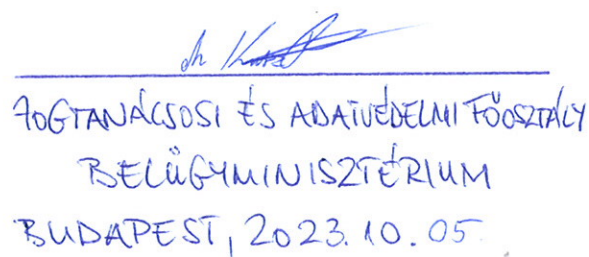 JOGTANÁCSOSI ÉS ADATVÉDELMI FŐOSZTÁLY
BELÜGYMINISZTÉRIUM
BUDAPEST, 2023.10.05.